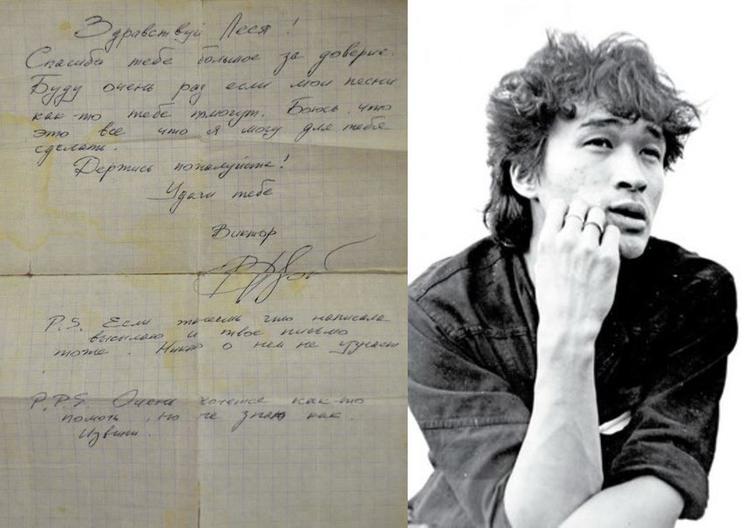 Здравствуй Леся!
Спасибо тебе большое за доверие.
Буду очень рад если мои песни
как-то тебе помогут. Боюсь что
это все что я могу для тебя
сделать.
Держись пожалуйста!
Удачи тебе
Виктор
P.S. Если что написала
высылаю и твое письмо
тоже. Никто о нем не узнает
P.P.S. Очень хочется как-то
помочь, но не знаю как.
Извини.